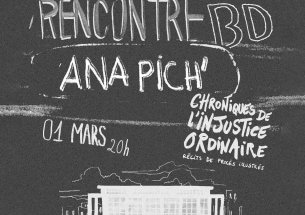 RENCONTRE BD
ANA PICH'
CHRONIQUES DE
L'INJUSTICE
ORDINAIRE
RÉCITS DE PROCÈS ILLUSTRÉS
01 MARS 20h